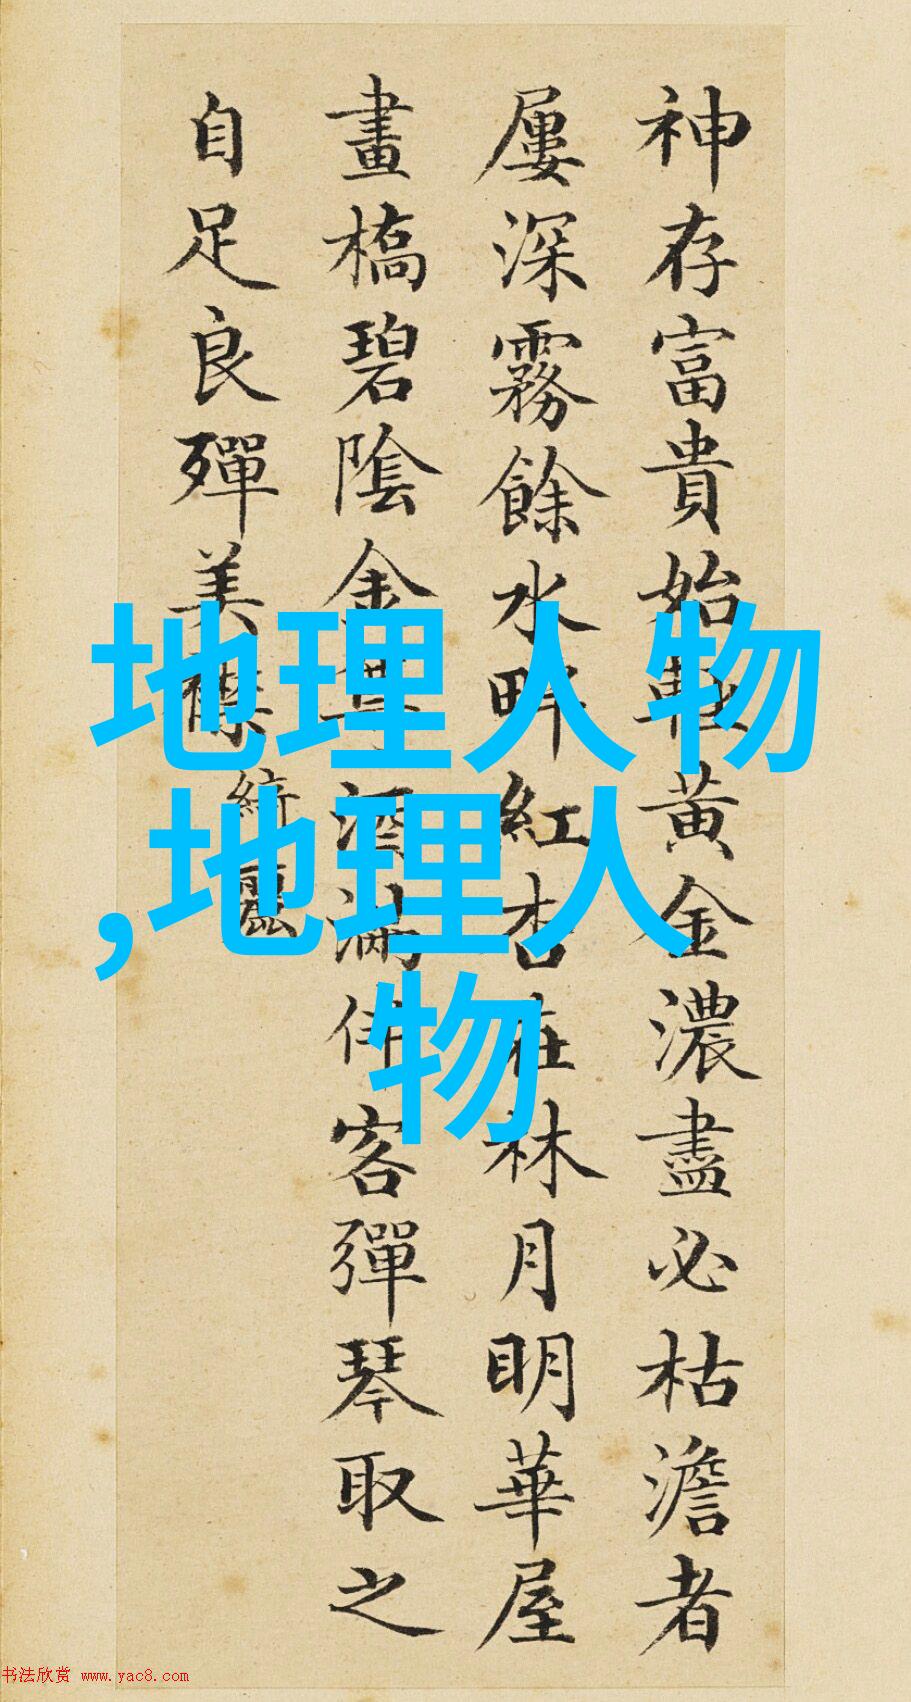 神存富貴始輕黃金濃盡必枯澹者
屢深霧餘水畔紅杏在林月明華屋
畫橋碧陰金尊酒滿伴客彈琴取之
自足良殫美襟
綺麗
地理人物
,地理人
物
书法欣赏 www.yac8.com